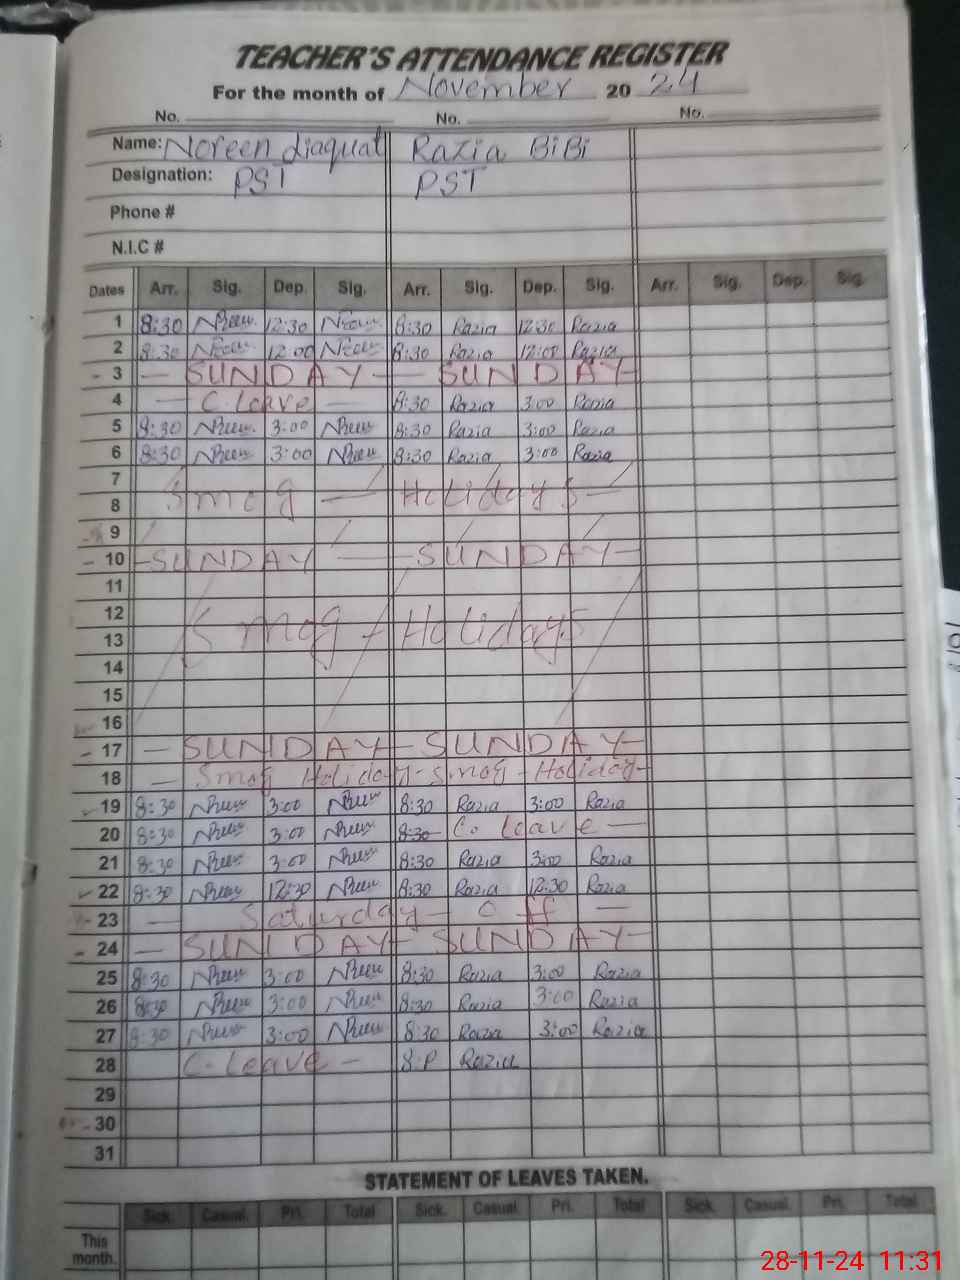 TEACHER'S ATTENDANCE REGISTER
For the month of November 20 24
No. No. No.
Name: Noreen Liaquat Razia BiBi
Designation: PST PST
Phone #
N.I.C #
Dates Arr. Sig. Dep. Sig. Arr. Sig. Dep. Sig. Arr. Sig. Dep. Sig.
1 8:30 12:30 8:30 Razia 12:30 Razia
2 8:30 12:00 8:30 Razia 12:00 Razia
3 — SUNDAY — SUNDAY —
4 — C. leave — 8:30 Razia 3:00 Razia
5 8:30 3:00 8:30 Razia 3:00 Razia
6 8:30 3:00 8:30 Razia 3:00 Razia
7
Smog — Holidays —
8
9
10 — SUNDAY — SUNDAY —
11
12
Smog Holidays
13
14
15
16
17 — SUNDAY — SUNDAY —
18 — Smog Holiday - Smog - Holiday -
19 8:30 3:00 8:30 Razia 3:00 Razia
20 8:30 3:00 8:30 C. leave —
21 8:30 3:00 8:30 Razia 3:00 Razia
22 8:30 12:30 8:30 Razia 12:30 Razia
23 — Saturday — off —
24 — SUNDAY — SUNDAY —
25 8:30 3:00 8:30 Razia 3:00 Razia
26 8:30 3:00 8:30 Razia 3:00 Razia
27 8:30 3:00 8:30 Razia 3:00 Razia
28 C. leave — Razia
29
30
31
STATEMENT OF LEAVES TAKEN.
Sick. Casual. Pri. Total Sick. Casual. Pri. Total Sick. Casual. Pri. Total
This month.
28-11-24 11:31